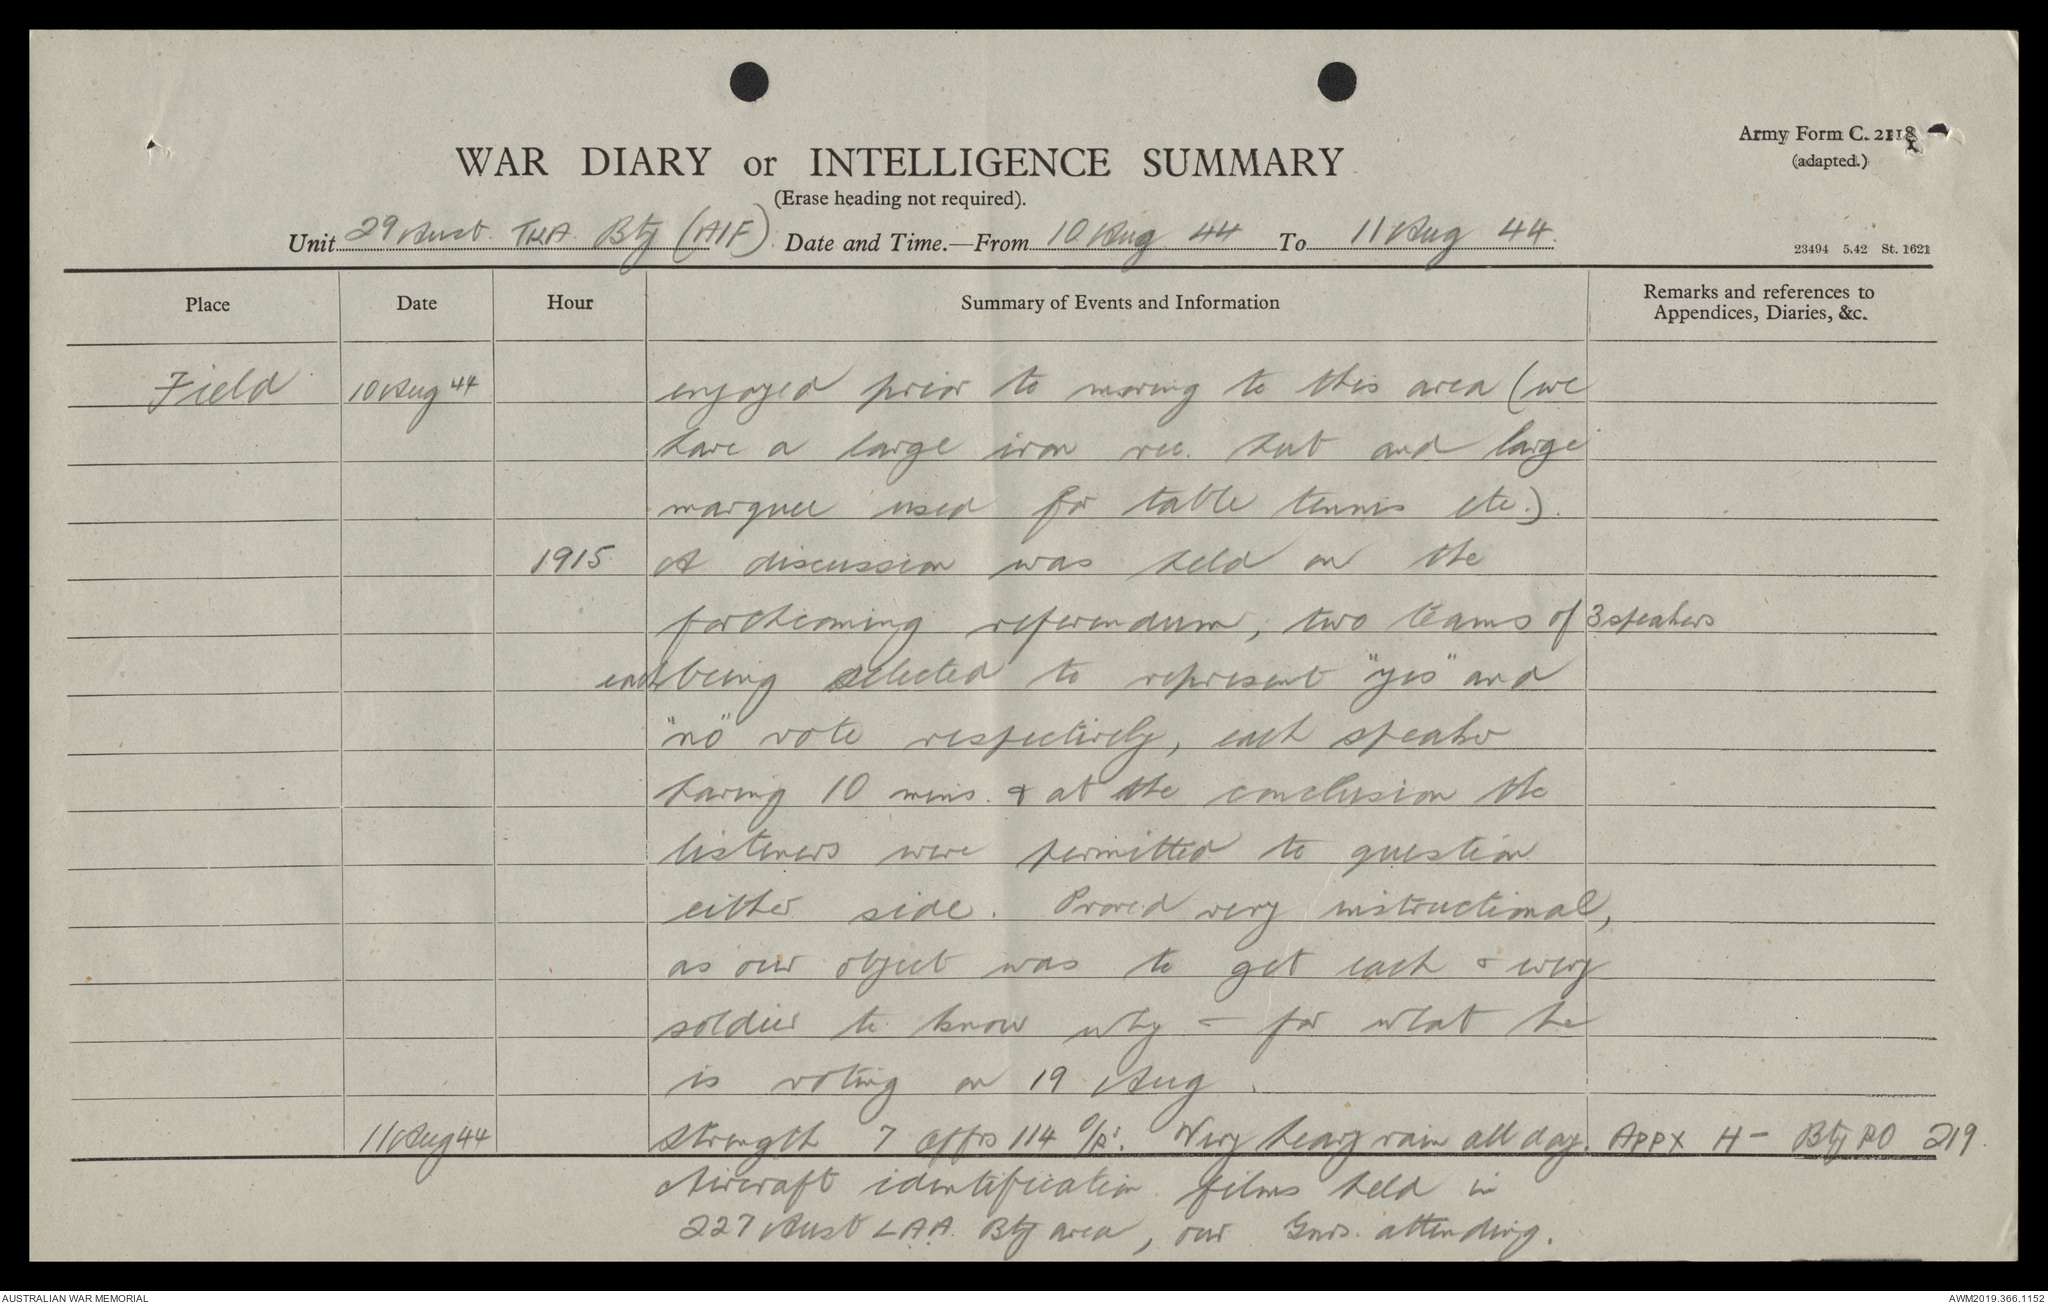 Army Form C. 2118
(adapted.)
WAR DIARY or INTELLIGENCE SUMMARY
(Erase heading not required).
Unit 29 Aust. Bty (AIF) Date and Time.—From 10 Aug 44 To 11 Aug 44.
23494 5.42 St. 1621
Place Date Hour Summary of Events and Information Remarks and references to
Appendices, Diaries, &c.
Field 10 Aug 44 enjoyed prior to moving to this area (we
have a large iron rec. hut and large
marquee used for table tennis etc.).
1915. A discussion was held on the
forthcoming referendum, two teams of 3 speakers
each being selected to represent "yes" and
"no" vote respectively, each speaker
having 10 mins. & at the conclusion the
listeners were permitted to question
either side. Proved very instructional,
as our object was to get each & every
soldier to know why & for what he
is voting on 19 Aug.
11 Aug 44 Strength 7 offrs 114 O/Rs. Very heavy rain all day. APPX H- Bty RO 219.
Aircraft identification films held in
227 Aust LAA. Bty area, our Gnrs. attending.
AUSTRALIAN WAR MEMORIAL
AWM2019.366.1152